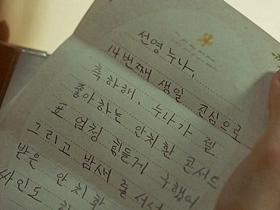 선영누나,
14번째 생일 진심으로
축하해. 누나가 젤
좋아하는 안치환 콘서트
표 엄청 힘들게 구했어
그리고 밤새 줄서서
받은 안치환
싸인도